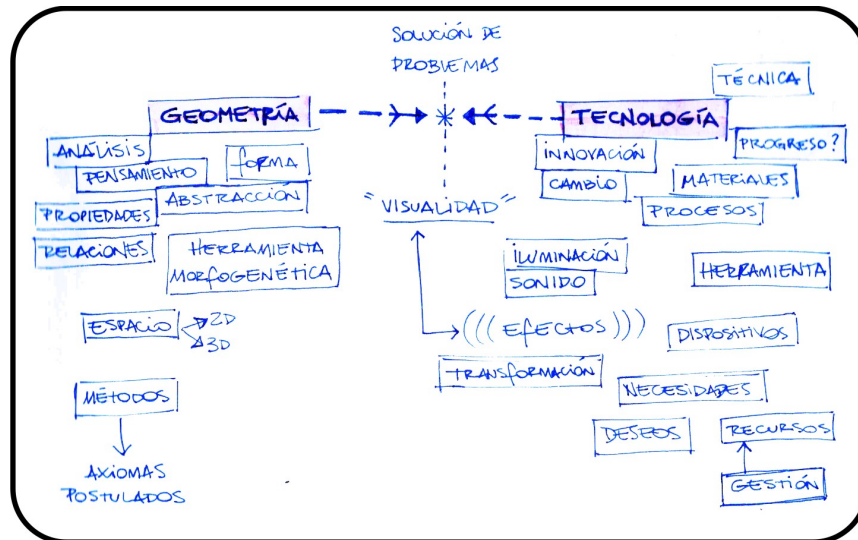 SOLUCIÓN DE
PROBLEMAS
GEOMETRÍA
TECNOLOGÍA
TÉCNICA
ANÁLISIS
PENSAMIENTO
FORMA
ABSTRACCIÓN
PROPIEDADES
RELACIONES
HERRAMIENTA
MORFOGENÉTICA
ESPACIO
2D
3D
MÉTODOS
AXIOMAS
POSTULADOS
"VISUALIDAD"
INNOVACIÓN
CAMBIO
PROGRESO?
MATERIALES
PROCESOS
ILUMINACIÓN
SONIDO
HERRAMIENTA
(((EFECTOS)))
TRANSFORMACIÓN
DISPOSITIVOS
NECESIDADES
DESEOS
RECURSOS
GESTIÓN